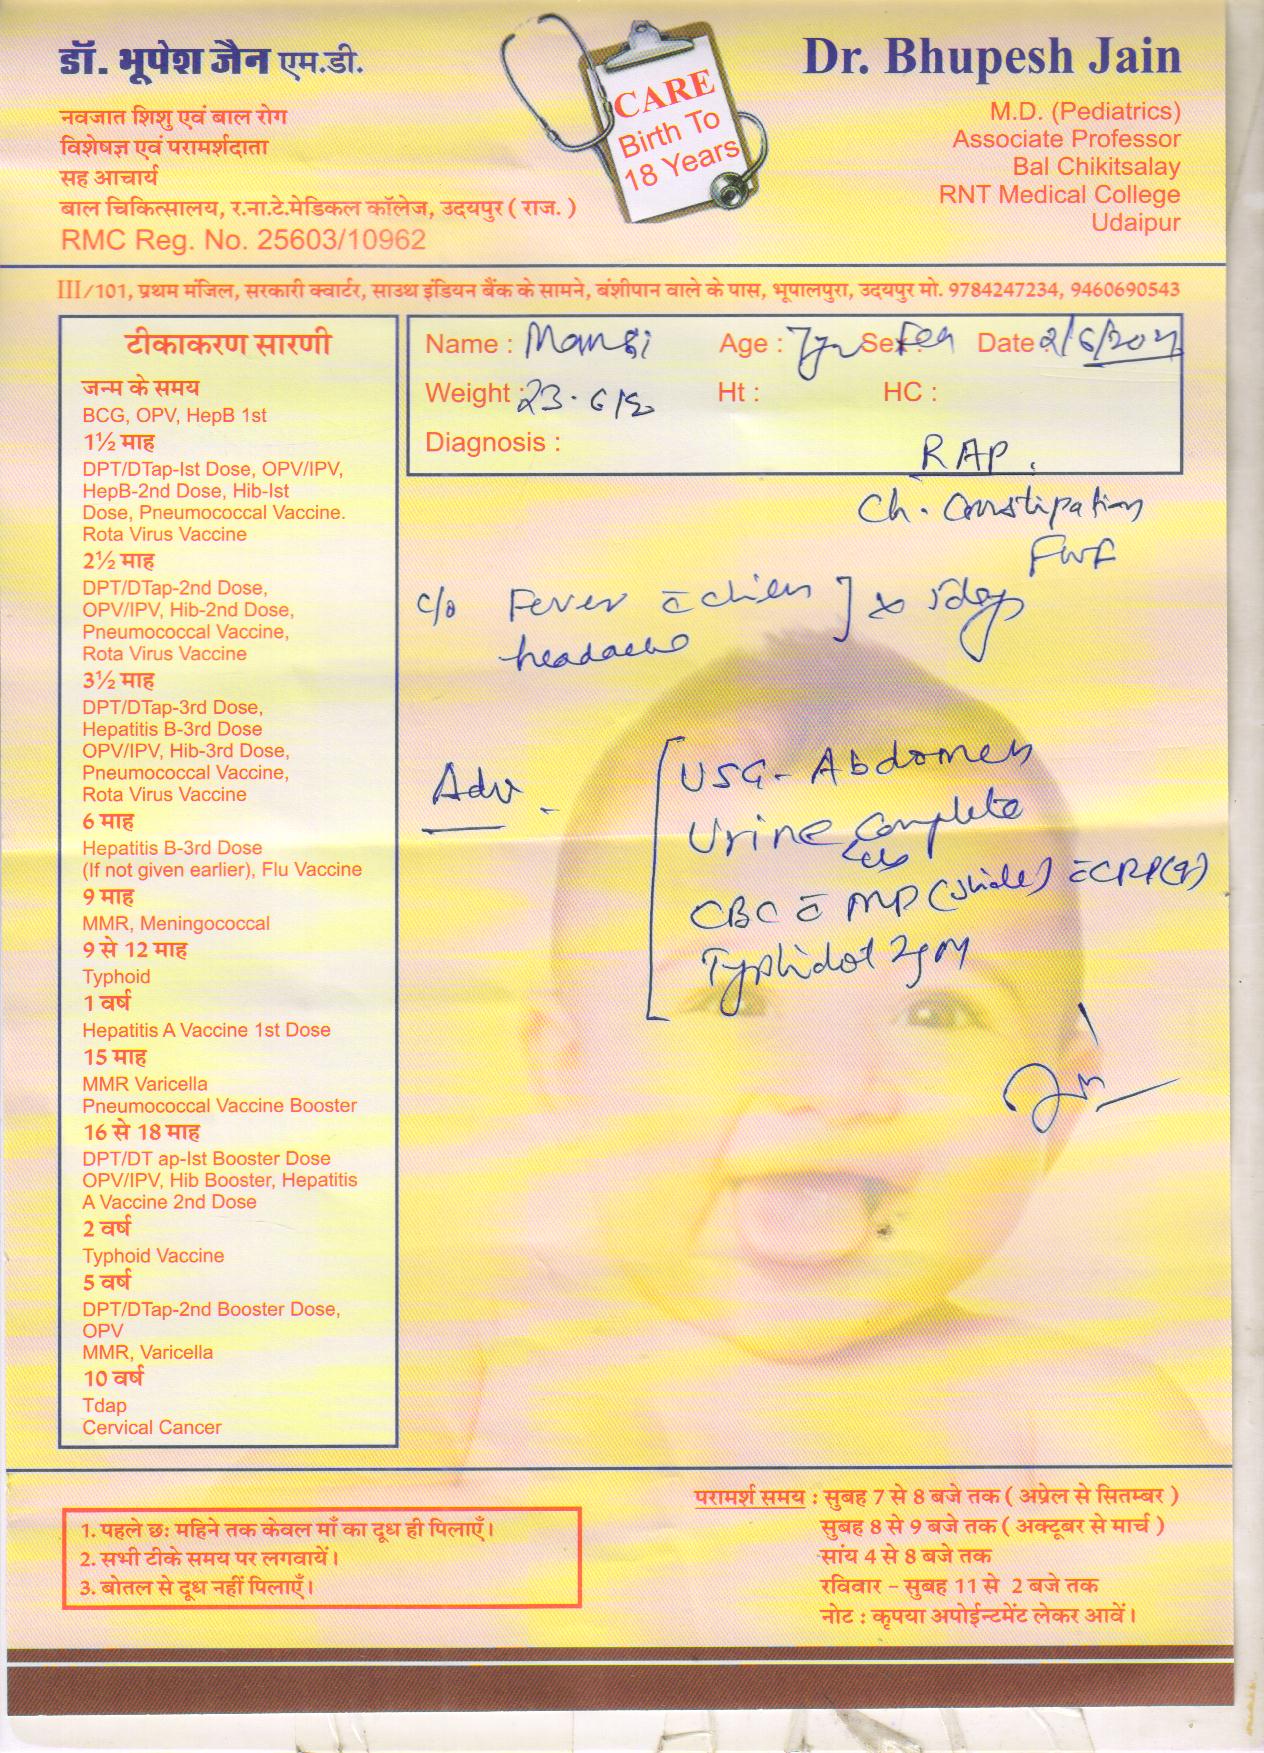 डॉ. भूपेश जैन एम.डी.
नवजात शिशु एवं बाल रोग
विशेषज्ञ एवं परामर्शदाता
सह आचार्य
बाल चिकित्सालय, र.ना.टे.मेडिकल कॉलेज, उदयपुर ( राज. )
RMC Reg. No. 25603/10962
CARE
Birth To
18 Years
Dr. Bhupesh Jain
M.D. (Pediatrics)
Associate Professor
Bal Chikitsalay
RNT Medical College
Udaipur
III/101, प्रथम मंजिल, सरकारी क्वार्टर, साउथ इंडियन बैंक के सामने, बंशीपान वाले के पास, भूपालपुरा, उदयपुर मो. 9784247234, 9460690543
टीकाकरण सारणी
जन्म के समय
BCG, OPV, HepB 1st
1½ माह
DPT/DTap-Ist Dose, OPV/IPV,
HepB-2nd Dose, Hib-Ist
Dose, Pneumococcal Vaccine.
Rota Virus Vaccine
2½ माह
DPT/DTap-2nd Dose,
OPV/IPV, Hib-2nd Dose,
Pneumococcal Vaccine,
Rota Virus Vaccine
3½ माह
DPT/DTap-3rd Dose,
Hepatitis B-3rd Dose
OPV/IPV, Hib-3rd Dose,
Pneumococcal Vaccine,
Rota Virus Vaccine
6 माह
Hepatitis B-3rd Dose
(If not given earlier), Flu Vaccine
9 माह
MMR, Meningococcal
9 से 12 माह
Typhoid
1 वर्ष
Hepatitis A Vaccine 1st Dose
15 माह
MMR Varicella
Pneumococcal Vaccine Booster
16 से 18 माह
DPT/DT ap-Ist Booster Dose
OPV/IPV, Hib Booster, Hepatitis
A Vaccine 2nd Dose
2 वर्ष
Typhoid Vaccine
5 वर्ष
DPT/DTap-2nd Booster Dose,
OPV
MMR, Varicella
10 वर्ष
Tdap
Cervical Cancer
Name : Mansi Age : 7yr Sex : Date :
Weight : 23. Ht : HC :
Diagnosis : RAP.
Ch. Constipation
c/o Fever c̄ chills ] x 5days
headache
Adv - [ USG - Abdomen
Urine complete
CBC c̄ MP (slide) c̄ CRP(q)
Typhidot
1. पहले छः महिने तक केवल माँ का दूध ही पिलाएँ।
2. सभी टीके समय पर लगवायें।
3. बोतल से दूध नहीं पिलाएँ।
परामर्श समय : सुबह 7 से 8 बजे तक ( अप्रेल से सितम्बर )
सुबह 8 से 9 बजे तक ( अक्टूबर से मार्च )
सांय 4 से 8 बजे तक
रविवार – सुबह 11 से 2 बजे तक
नोट : कृपया अपोईन्टमेंट लेकर आवें।